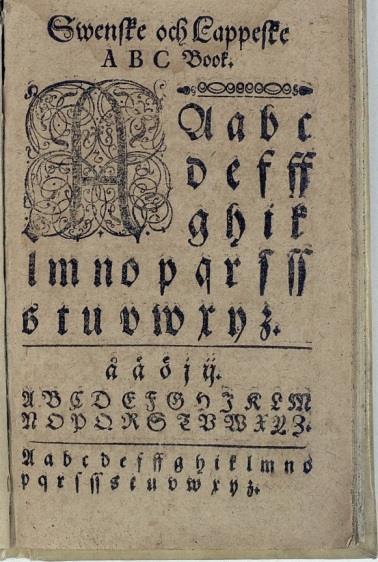 Swenske och Lappeske
A B C Book.
A
A a b c
d e f ff
g h i k
l m n o p q r ſ ſſ
s t u v w x y z.
å ä ö j ij.
A B C D E F G H I K L M
N O P Q R S T V W X Y Z.
A a b c d e f ff g h i k l m n o
p q r ſ ſſ s t u v w x y z.